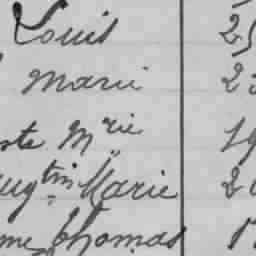 Louis 25
Marie 2
ste Mrie 19
ugtin Marie 20
me Thomas